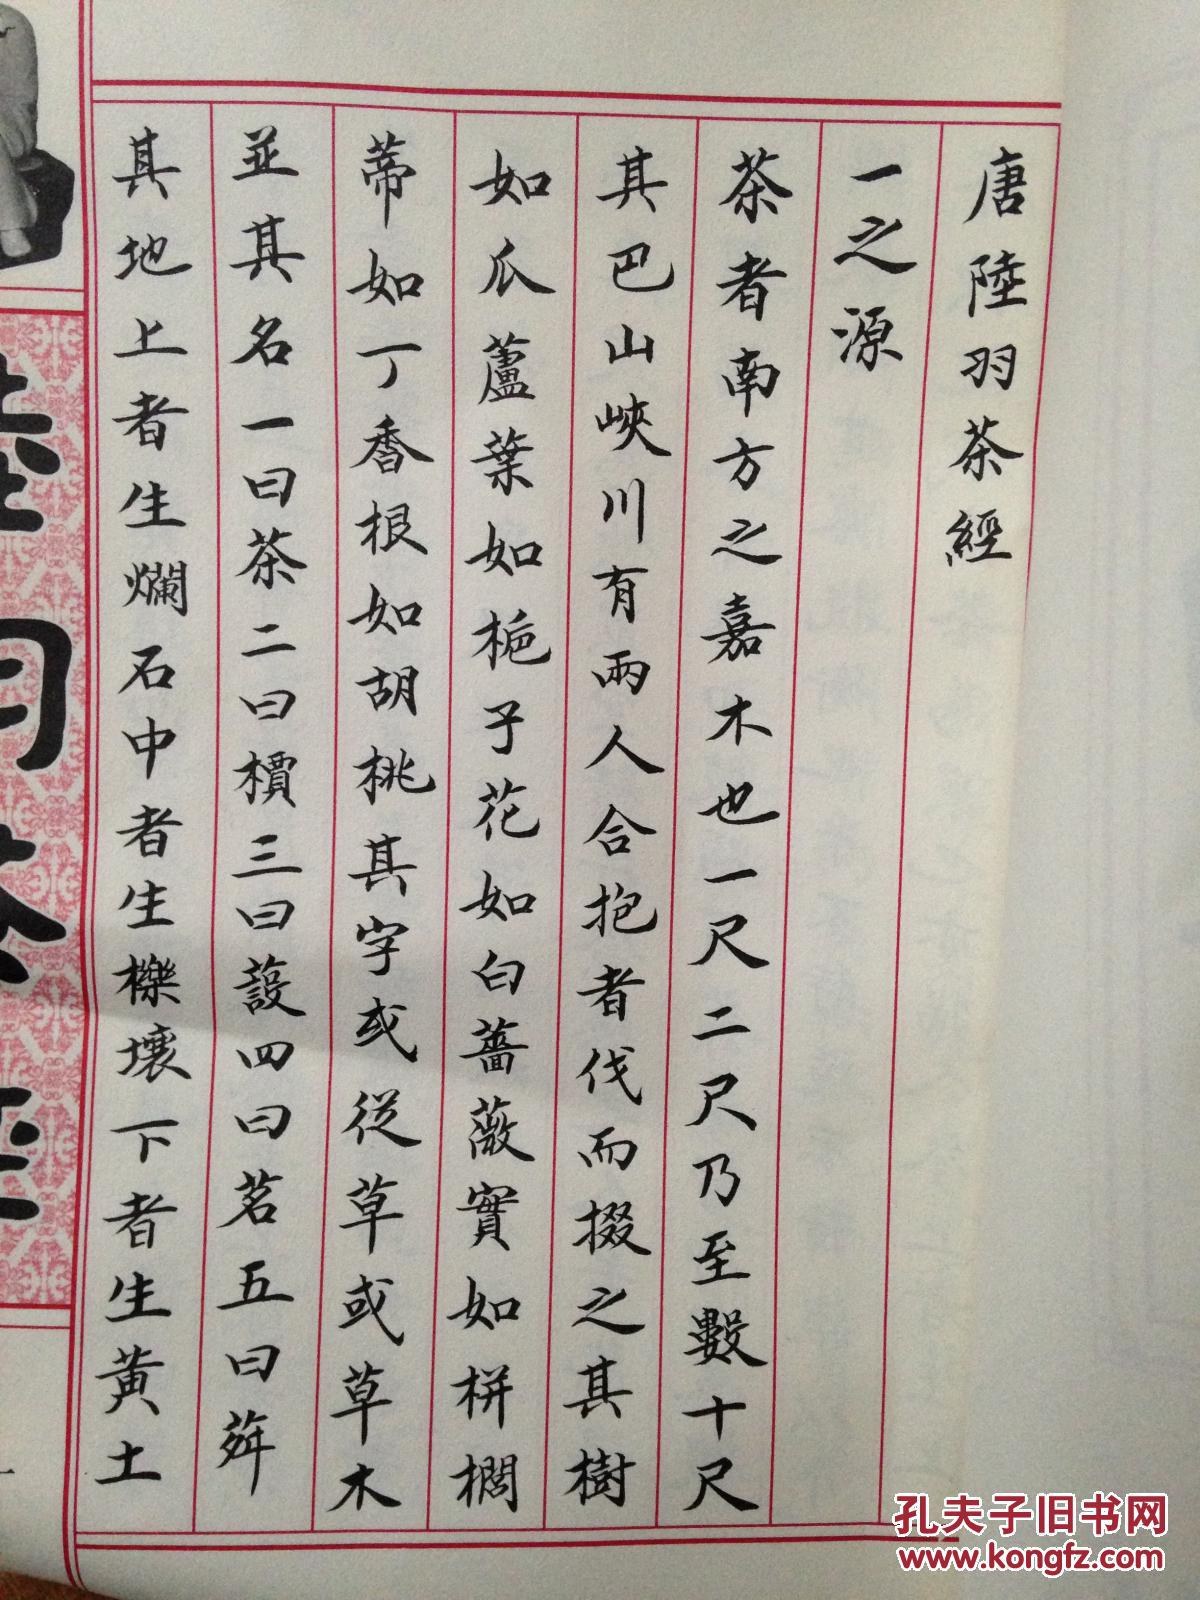 唐陸羽茶經
一之源
茶者南方之嘉木也一尺二尺乃至數十尺
其巴山峽川有兩人合抱者伐而掇之其樹
如瓜蘆葉如梔子花如白薔薇實如栟櫚
蒂如丁香根如胡桃其字或從草或草木
並其名一曰茶二曰檟三曰蔎四曰茗五曰荈
其地上者生爛石中者生櫟壤下者生黃土
孔夫子旧书网
www.kongfz.com